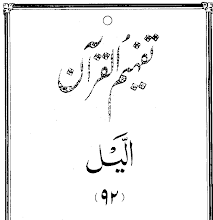 تفہیم القرآن
الّیل
(۹۲)